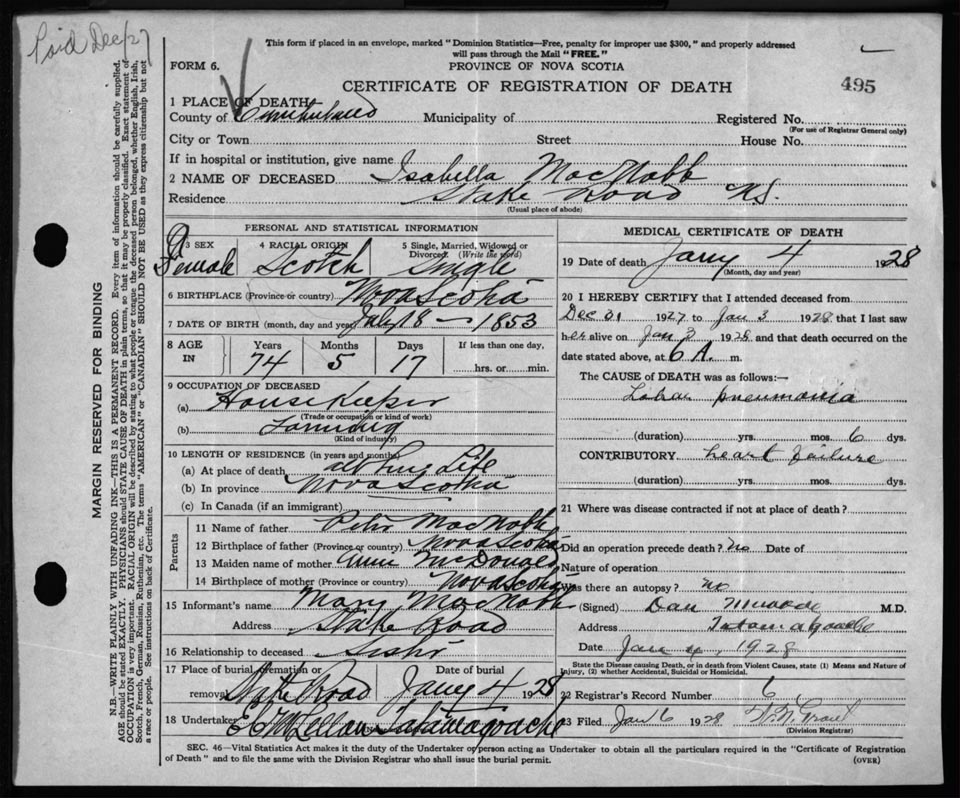 Paid Dec/27
This form if placed in an envelope, marked "Dominion Statistics—Free, penalty for improper use $300," and properly addressed
will pass through the Mail "FREE."
FORM 6.
PROVINCE OF NOVA SCOTIA
CERTIFICATE OF REGISTRATION OF DEATH
495
1 PLACE OF DEATH
County of Cumberland Municipality of Registered No.
(For use of Registrar General only)
City or Town Street House No.
If in hospital or institution, give name
2 NAME OF DECEASED Isabella MacNabb
Residence Lake Road NS.
(Usual place of abode)
PERSONAL AND STATISTICAL INFORMATION
3 SEX 4 RACIAL ORIGIN 5 Single, Married, Widowed or
Divorced (Write the word)
Female Scotch Single
6 BIRTHPLACE (Province or country) Nova Scotia
7 DATE OF BIRTH (month, day and year) July 18 — 1853
8 AGE IN Years Months Days If less than one day,
74 5 17 hrs. or min.
9 OCCUPATION OF DECEASED
(a) Housekeeper
(Trade or occupation or kind of work)
(b) Farming
(Kind of industry)
10 LENGTH OF RESIDENCE (in years and months)
(a) At place of death all her Life
(b) In province Nova Scotia
(c) In Canada (if an immigrant)
Parents
11 Name of father Peter MacNabb
12 Birthplace of father (Province or country) Nova Scotia
13 Maiden name of mother Ann McDonald
14 Birthplace of mother (Province or country) Nova Scotia
15 Informant's name Mary MacNabb
Address Lake Road
16 Relationship to deceased Sister
17 Place of burial, cremation or Date of burial
removal Lake Road Jany 4 1928
18 Undertaker McLellan Tatamagouche
MEDICAL CERTIFICATE OF DEATH
19 Date of death Jany 4 1928
(Month, day and year)
20 I HEREBY CERTIFY that I attended deceased from
Dec 31 1927 to Jan 3 1928 that I last saw
her alive on Jan 3 1928 and that death occurred on the
date stated above, at 6 A. m.
The CAUSE of DEATH was as follows:—
Lobar pneumonia
(duration) yrs. mos. 6 dys.
CONTRIBUTORY heart failure
(duration) yrs. mos. dys.
21 Where was disease contracted if not at place of death?
Did an operation precede death? no Date of
Nature of operation
Was there an autopsy? no
(Signed) Dan M.D.
Address Tatamagouche
Date Jan 4, 1928
State the Disease causing Death, or in death from Violent Causes, state (1) Means and Nature of
Injury, (2) whether Accidental, Suicidal or Homicidal.
22 Registrar's Record Number 6
23 Filed Jan 6 1928 Grant
(Division Registrar)
SEC. 46—Vital Statistics Act makes it the duty of the Undertaker or person acting as Undertaker to obtain all the particulars required in the "Certificate of Registration
of Death" and to file the same with the Division Registrar who shall issue the burial permit.
(OVER)
MARGIN RESERVED FOR BINDING
N.B.—WRITE PLAINLY WITH UNFADING INK—THIS IS A PERMANENT RECORD. Every item of information should be carefully supplied.
AGE should be stated EXACTLY. PHYSICIANS should STATE CAUSE OF DEATH in plain terms, so that it may be properly classified. Exact statement of
OCCUPATION is very important. RACIAL ORIGIN will be described by stating to what people or tongue the deceased person belonged, whether English, Irish,
Scotch, French, German, Russian, Ruthenian, etc. The terms "AMERICAN" or "CANADIAN" SHOULD NOT BE USED as they express citizenship but not
a race or people. See instructions on back of Certificate.